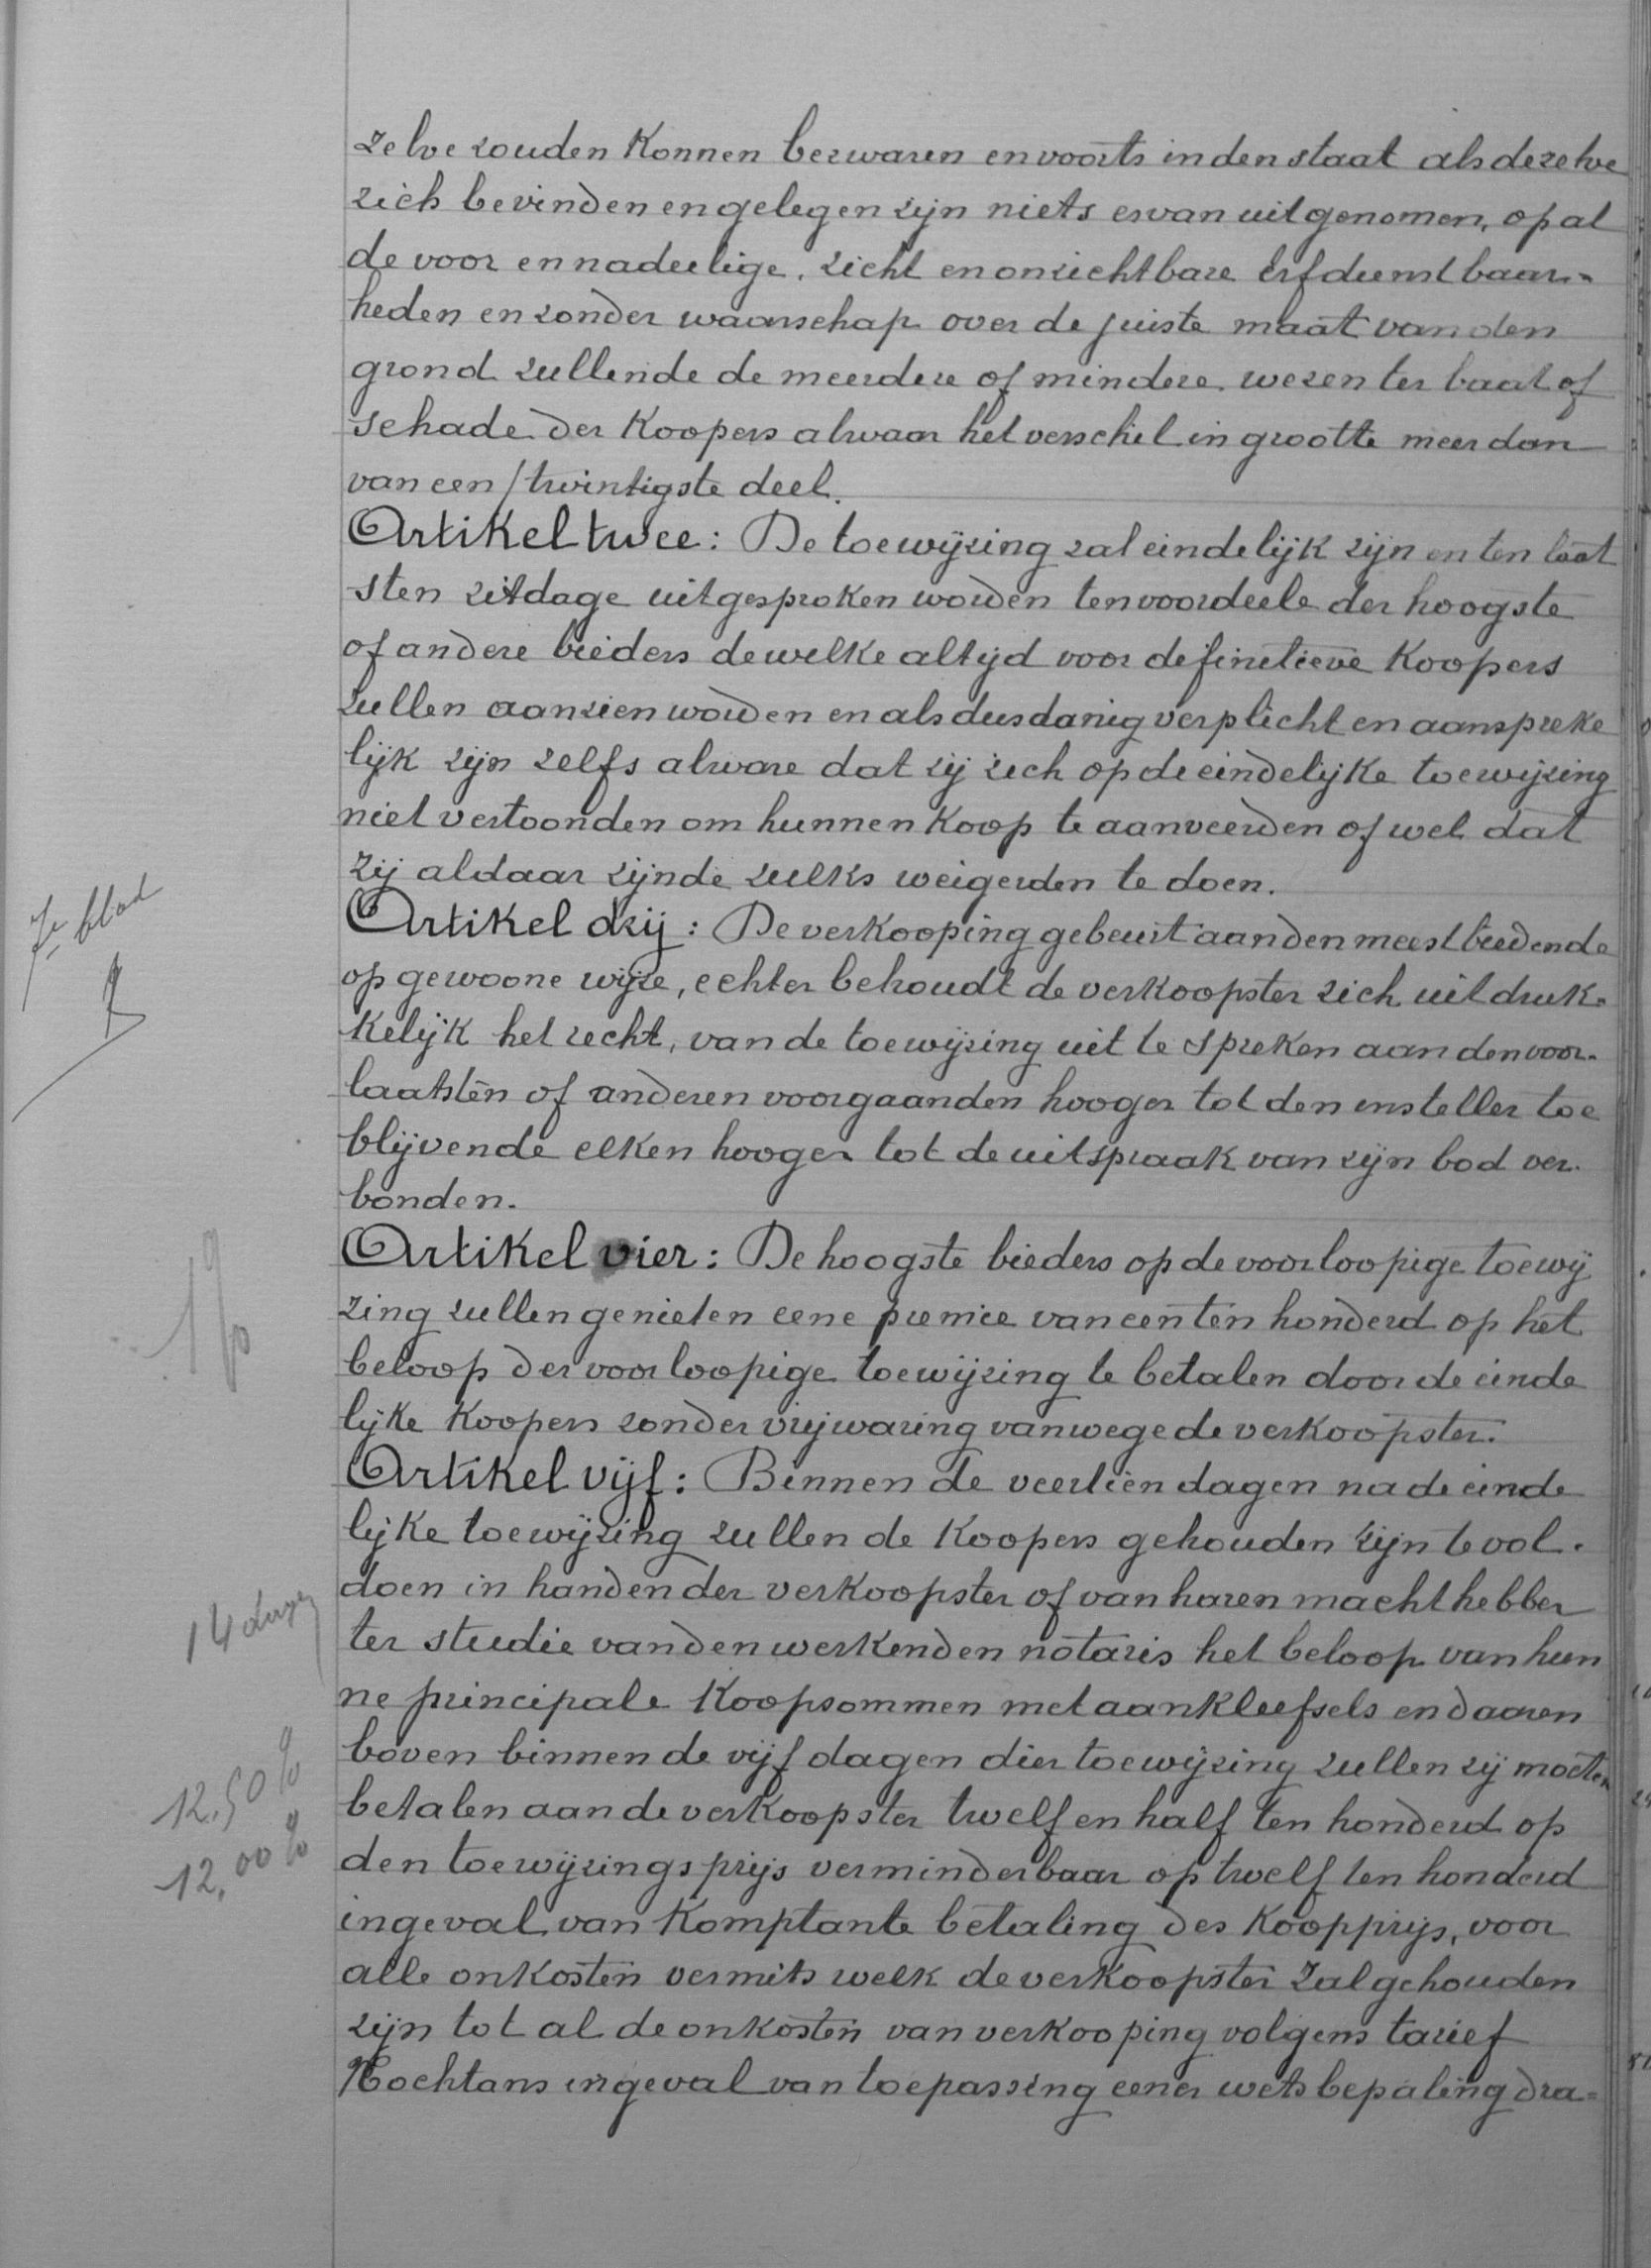 zelve zouden konnen bezwaren en voorts in den staat als dezelve
zich bevinden en gelegen zijn niets ervan uitgenomen, op al
de voor en nadeelige, zicht en onzichtbare erfdienstbaar-
heden en zonder waarschap over de juiste maat van den
grond zullende de meerdere of mindere wezen ter baat of
schade der Koopers alwaar het verschil in grootte meer dan
van een/twintigste deel.
Artikel twee: De toewijzing zal eindelijk zijn en ten laat
sten zitdage uitgesproken worden ten voordeele der hoogste
of andere bieders dewelke altijd voor definitieve Koopers
zullen aanzien worden en als dusdanig verplicht en aanspreke
lijk zijn zelfs alware dat zij zich op de eindelijke toewijzing
niet vertoonden om hunnen Koop te aanveerden of wel dat
zij aldaar zijnde zulks weigerden te doen.
7e blad
Artikel drij: De verkooping gebeurt aan den meestbiedende
op gewoone wijze, echter behoudt de verkoopster zich uitdruk-
kelijk het recht, van de toewijzing uit te spreken aan den voor-
laatsten of anderen voorgaanden hooger tot den insteller toe
blijvende elken hooger tot de uitspraak van zijn bod ver-
bonden.
1%
Artikel vier: De hoogste bieders op de voorloopige toewij
zing zullen genieten eene premie van een ten honderd op het
beloop der voorloopige toewijzing te betalen door de einde
lijke Koopers zonder vrijwaring vanwege de verkoopster.
Artikel vijf: Binnen de veertien dagen na de einde
lijke toewijzing zullen de Koopers gehouden zijn te vol-
doen in handen der verkoopster of van haren machthebber
14 dagen
ter studie van den werkenden notaris het beloop van hun
ne principale Koopsommen met aankleefsels en daaren
boven binnen de vijf dagen dier toewijzing zullen zij moeten
12.50%
betalen aan de verkoopster twelf en half ten honderd op
12,00%
den toewijzingsprijs verminderbaar op twelf ten honderd
ingeval van Komptante betaling des Koopprijs, voor
alle onkosten vermits welk de verkoopster zal gehouden
zijn tot al de onkosten van verkooping volgens tarief
Nochtans ingeval van toepassing eener wetsbepaling dra=